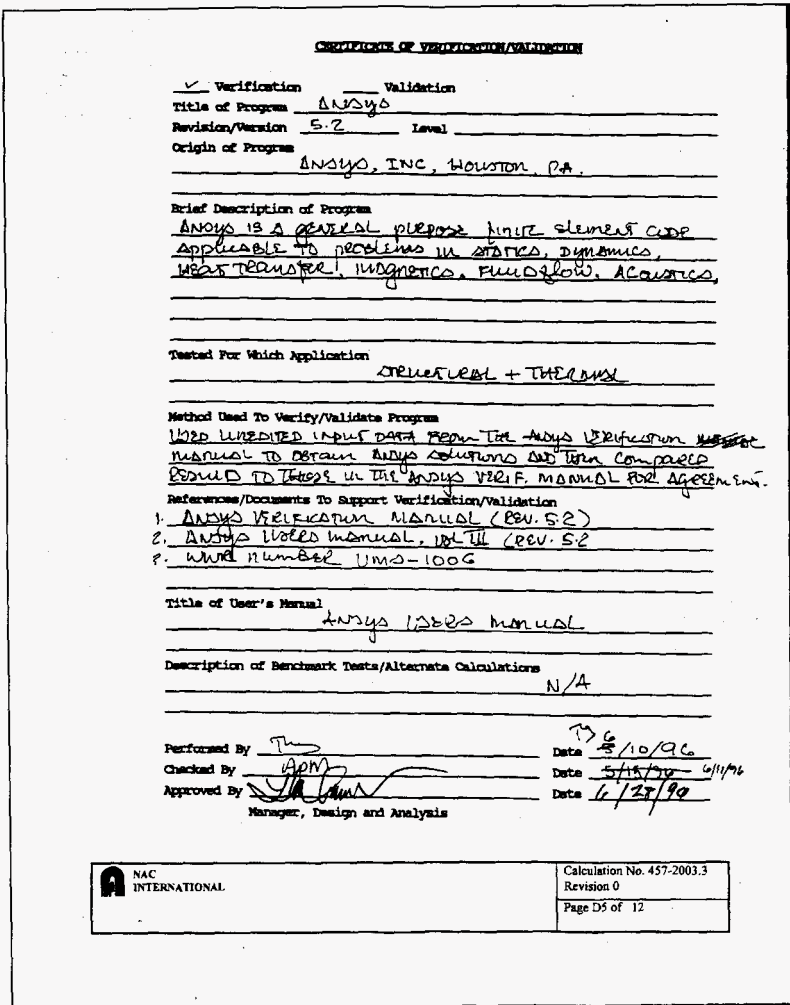 CERTIFICATE OF VERIFICATION/VALIDATION
✓ Verification Validation
Title of Program ANSYS
Revision/Version 5.2 Level
Origin of Program
ANSYS, INC, HOUSTON, PA.
Brief Description of Program
ANSYS IS A GENERAL PURPOSE FINITE ELEMENT CODE
APPLICABLE TO PROBLEMS IN STATICS, DYNAMICS,
HEAT TRANSFER, MAGNETICS, FLUID FLOW, ACOUSTICS,
Tested For Which Application
STRUCTURAL + THERMAL
Method Used To Verify/Validate Program
USED UNEDITED INPUT DATA FROM THE ANSYS VERIFICATION
MANUAL TO OBTAIN ANSYS SOLUTIONS AND THEN COMPARED
RESULTS TO THOSE IN THE ANSYS VERIF. MANUAL FOR AGREEMENT.
References/Documents To Support Verification/Validation
1. ANSYS VERIFICATION MANUAL (REV. 5.2)
2. ANSYS USERS MANUAL, VOL III (REV. 5.2
3. NUMBER UMS-1006
Title of User's Manual
ANSYS USERS MANUAL
Description of Benchmark Tests/Alternate Calculations
N/A
6
Performed By Date 5/10/96
Checked By APM Date 5/15/96 6/11/96
Approved By Date 6/28/96
Manager, Design and Analysis
NAC
INTERNATIONAL
Calculation No. 457-2003.3
Revision 0
Page D5 of 12